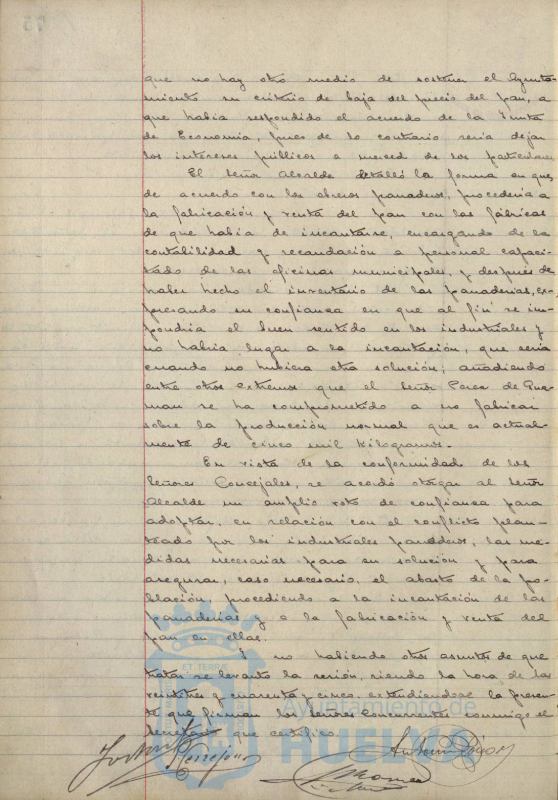 que no hay otro medio de sostener el Ayunta-
miento su criterio de baja del precio del pan, a
que habia respondido el acuerdo de la Junta
de Economía, pues de lo contrario seria dejar
los intereses públicos a merced de los particulares
El Señor Alcalde detalló la forma en que,
de acuerdo con los obreros panaderos, procederia a
la fabricación y venta del pan con las fábricas
de que habia de incautarse, encargando de la
contabilidad y recaudación a personal capaci-
tado de las oficinas municipales, y despues de
haber hecho el inventario de las panaderias, ex-
presando su confianza en que al fin se im-
pondria el buen sentido en los industriales y
no habria lugar a la incautación, que seria
cuando no hubiera otra solución; añadiendo
entre otros extremos que el Señor Perea de Guz-
man se ha comprometido a no fabricar
sobre la producción normal que es actual-
mente de cinco mil Kilogramos.
En vista de la conformidad de los
Señores Concejales, se acordó otorgar al Señor
Alcalde un amplio voto de confianza para
adoptar, en relación con el conflicto plan-
teado por los industriales panaderos, las me-
didas necesarias para su solución y para
asegurar, caso necesario, el abasto de la po-
blación, procediendo a la incautación de las
panaderias y a la fabricación y venta del
pan en ellas.
Y no habiendo otros asuntos de que
tratar se levanto la sesión, siendo la hora de las
veintitres y cuarenta y cinco, extendiendose la presen-
te que firman los Señores Concurrentes conmigo el
Secretario que certifico.
ET TERRÆ
Ayuntamiento de
HUELVA
Antonio